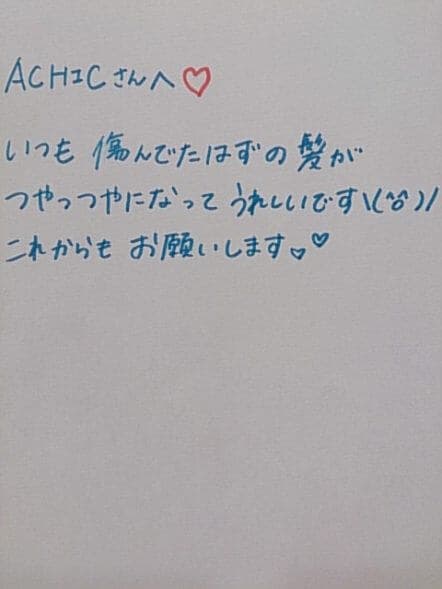 ACHICさんへ♡
いつも 傷んでたはずの 髪が
つやっつやになって うれしいです\(^o^)/
これからも お願いします♡♡